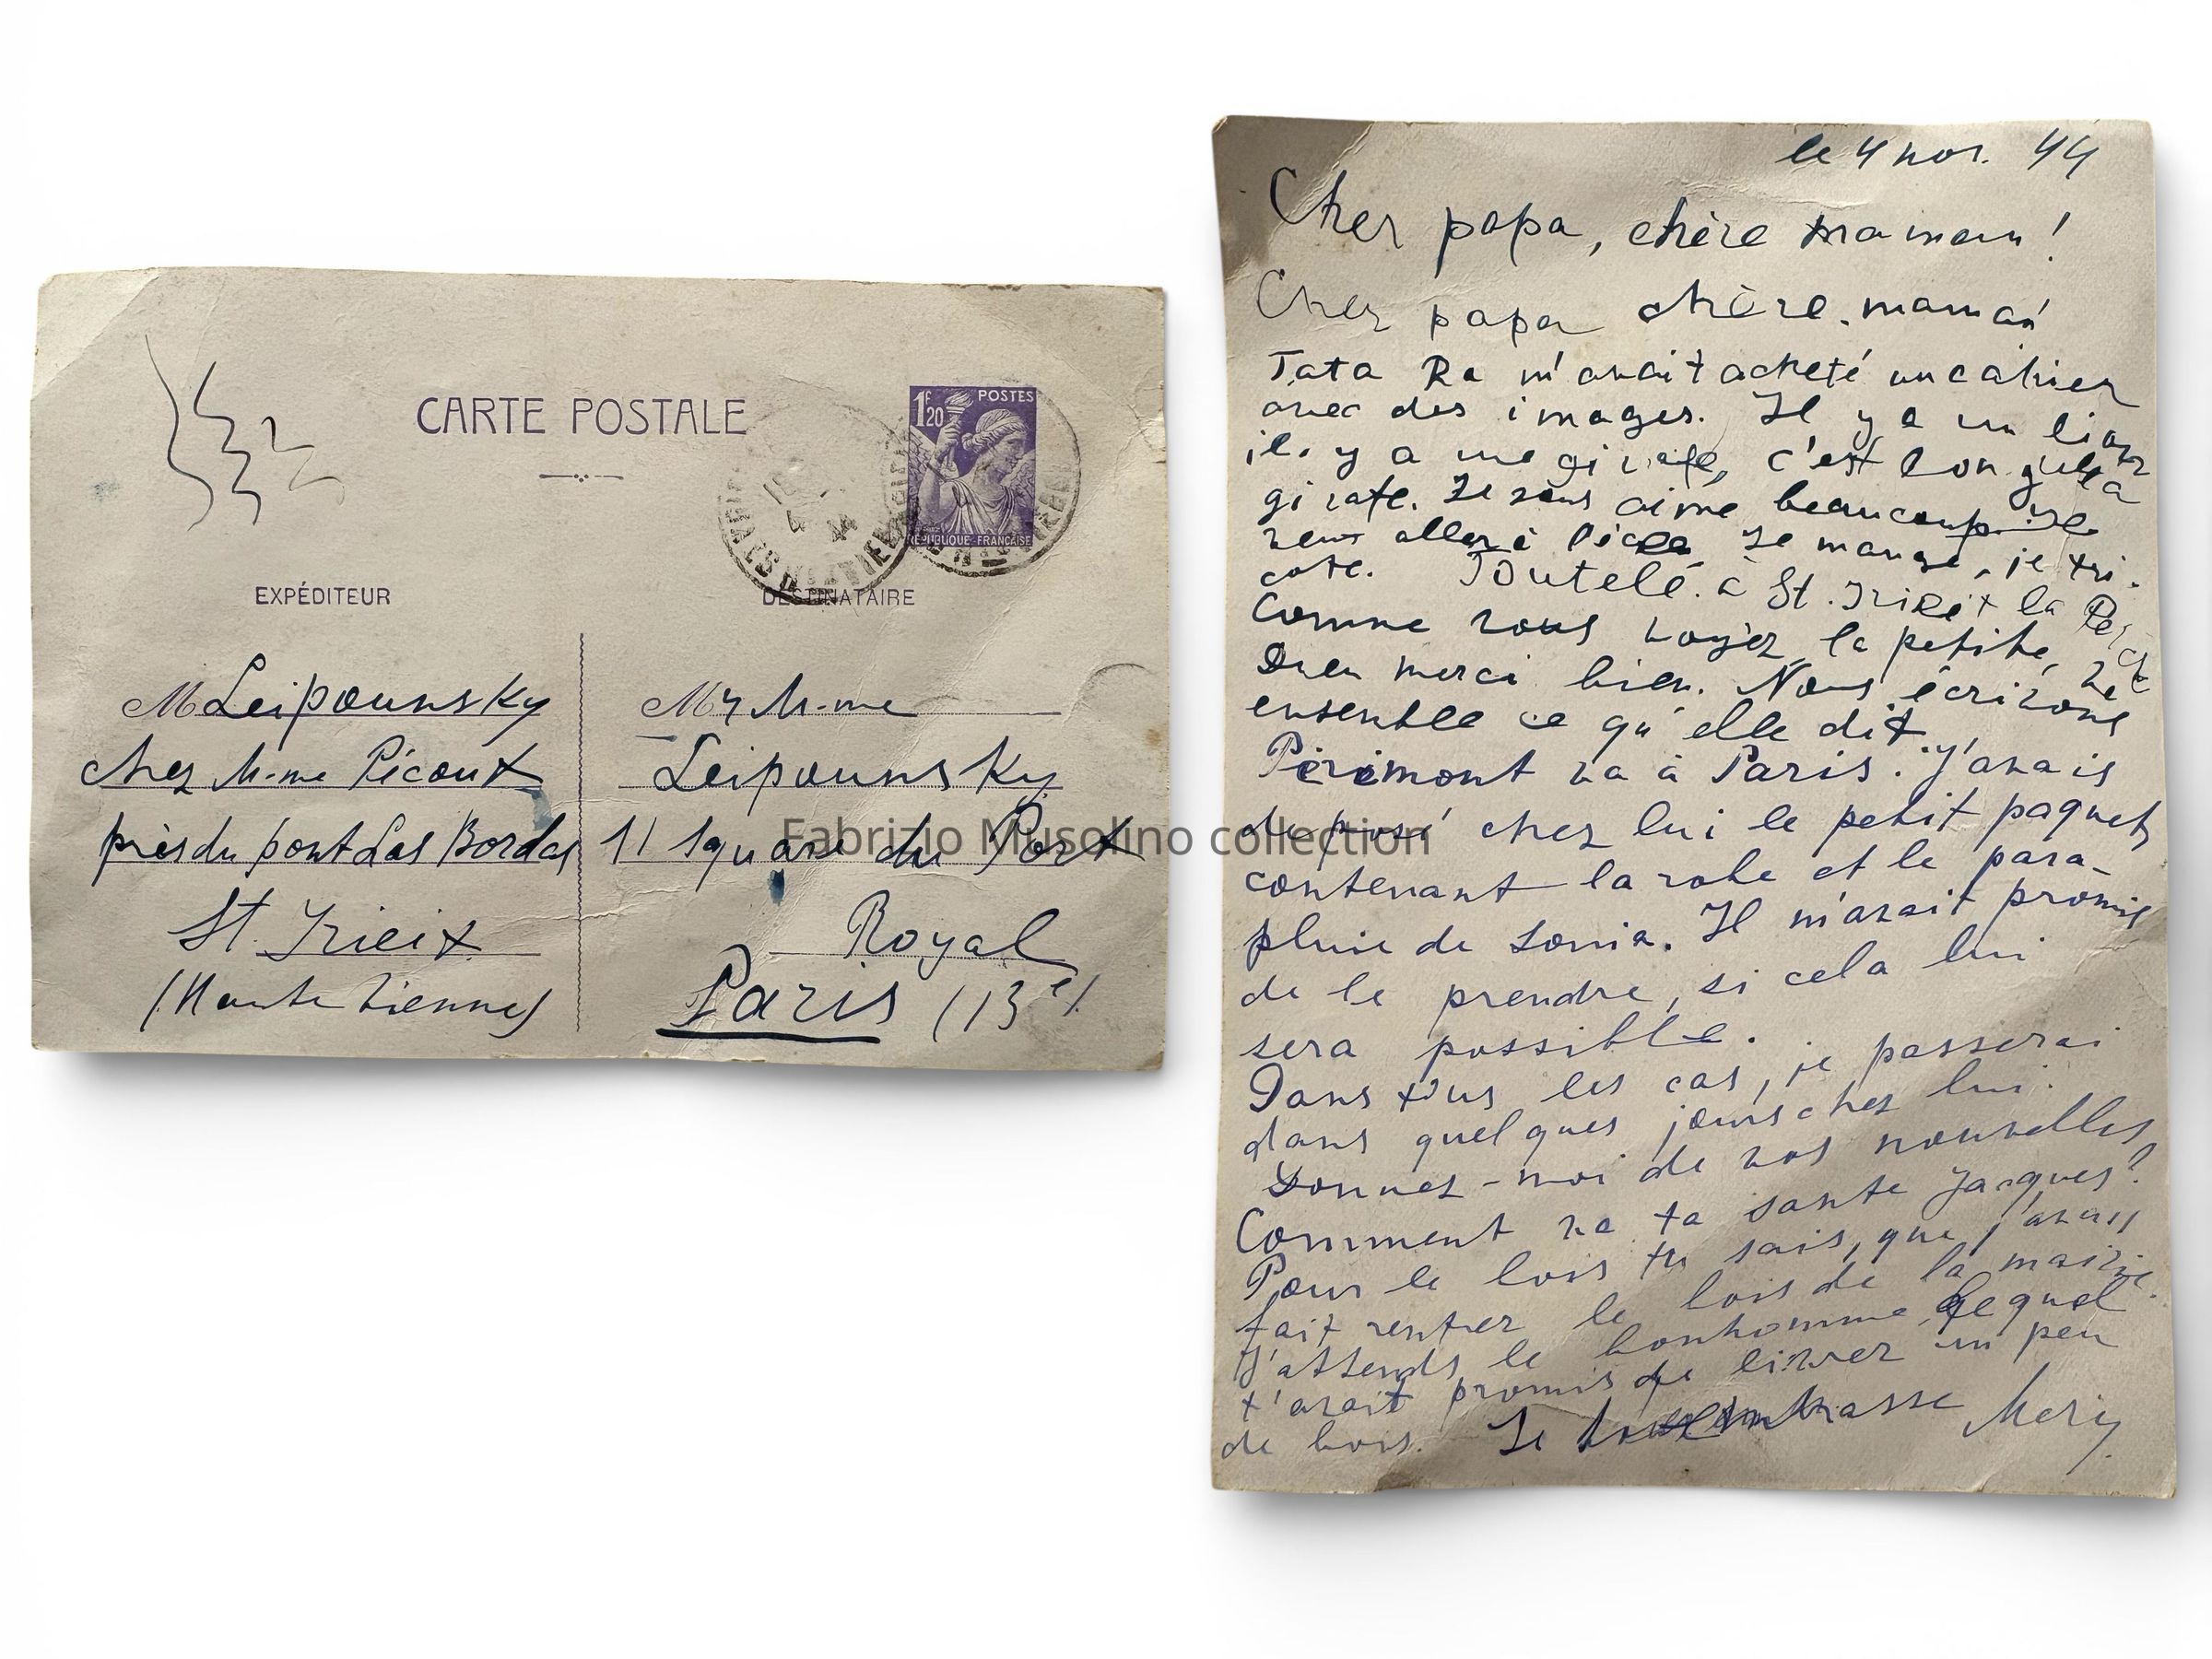 CARTE POSTALE
POSTES
1F
20
RÉPUBLIQUE FRANÇAISE
EXPÉDITEUR
DESTINATAIRE
M Leipounsky
chez M-me Pécout
près du pont Las Bordas
St. Yrieix
(Haute Vienne)
Mr M-me
Leipounsky
11 Square du Port
Royal
Paris (13e)
Fabrizio Musolino collection
le 4 nov. 44
Cher papa, chère maman!
Cher papa chère maman
Tata Ra m'avait acheté un cahier
avec des images. Il y a un lion
il y a une girafe, c'est long que la
girafe. Je vous aime beaucoup je
veux aller à l'école Je mange, je tri-
cote. à St. Yrieix la Perche
Comme vous voyez la petite, va
Dieu merci bien. Nous écrivons
ensemble ce qu'elle dit
Périmont va à Paris. J'avais
déposé chez lui le petit paquet
contenant la robe et le para-
pluie de Sonia. Il m'avait promis
de le prendre, si cela lui
sera possible.
Dans tous les cas, je passerai
dans quelques jours chez lui.
Donnez-moi de vos nouvelles
Comment va ta santé Jacques?
Pour le bois tu sais, que j'avais
fait rentrer le bois de la mairie.
J'attends le bonhomme lequel
t'avait promis de livrer un peu
de bois. Je vous embrasse Mery